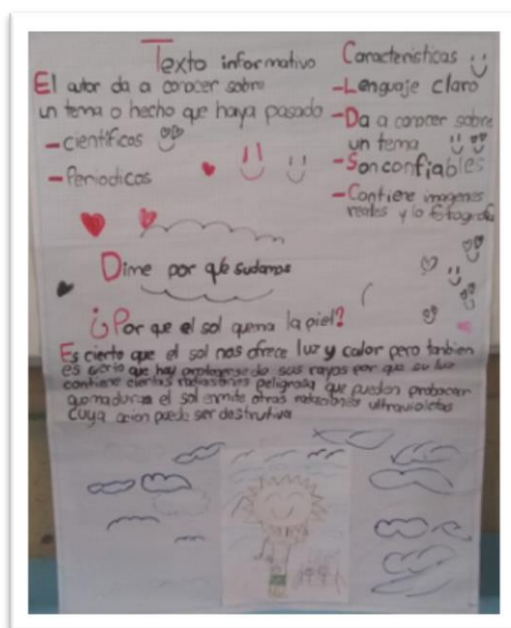 Texto informativo
El autor da a conocer sobre
un tema o hecho que haya pasado
-científicos
-Periodicos
Caracteristicas
-Lenguaje claro
-Da a conocer sobre
un tema
-Son confiables
-Contiene imagenes
reales y lo fotografia
Dime por qué sudamos
¿Por que el sol quema la piel?
Es cierto que el sol nos ofrece luz y calor pero tanbien
es cierto que hay protegerse do sus rayos por que su luz
contiene ciertas radiasiones peligrosa que pueden probocar
quemaduras el sol emite otras radiasiones ultravioletas
cuya acion puede ser destrutiva